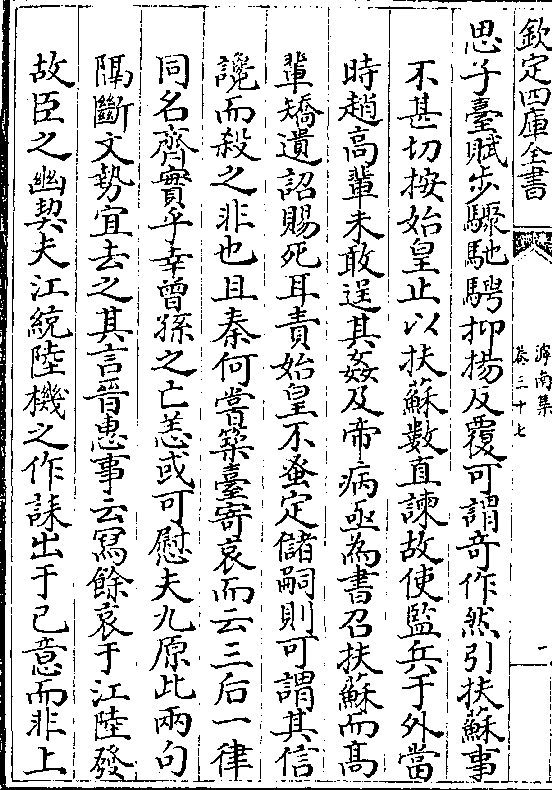 欽定四庫全書
滹南集
卷三十七
二
思子臺賦步驟馳騁抑揚反覆可謂奇作然引扶蘇事
不甚切按始皇止以扶蘇數直諫故使監兵于外當
時趙高輩未敢逞其姦及帝病亟為書召扶蘇而高
輩矯遺詔賜死耳責始皇不蚤定儲嗣則可謂其信
讒而殺之非也且秦何嘗築臺寄哀而云三后一律
同名齊實乎幸曾孫之亡恙或可慰夫九原此兩句
隔斷文勢宜去之其言晉惠事云冩餘哀于江陸發
故臣之幽契夫江統陸機之作誄出于己意而非上